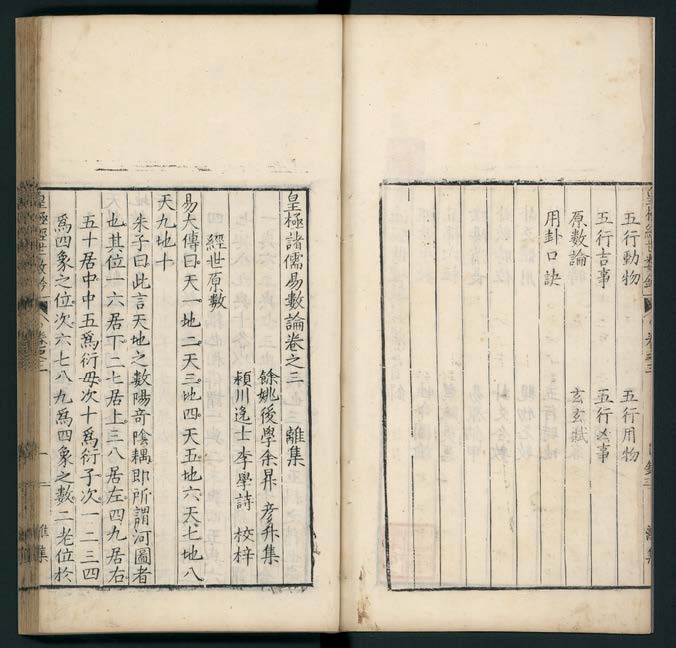 五行動物 五行用物
五行吉事 五行凶事
原數論 玄玄賦
用卦口訣
皇極諸儒易數論卷之三 離集
餘姚後學余昇 彦升集
潁川逸士李學詩 校梓
經世原數
易大傳曰天一地二天三地四天五地六天七地八
天九地十
朱子曰此言天地之數陽奇陰耦即所謂河圖者
也其位一六居下二七居上三八居左四九居右
五十居中中五爲衍母次十爲衍子次一二三四
爲四象之位次六七八九爲四象之數二老位於